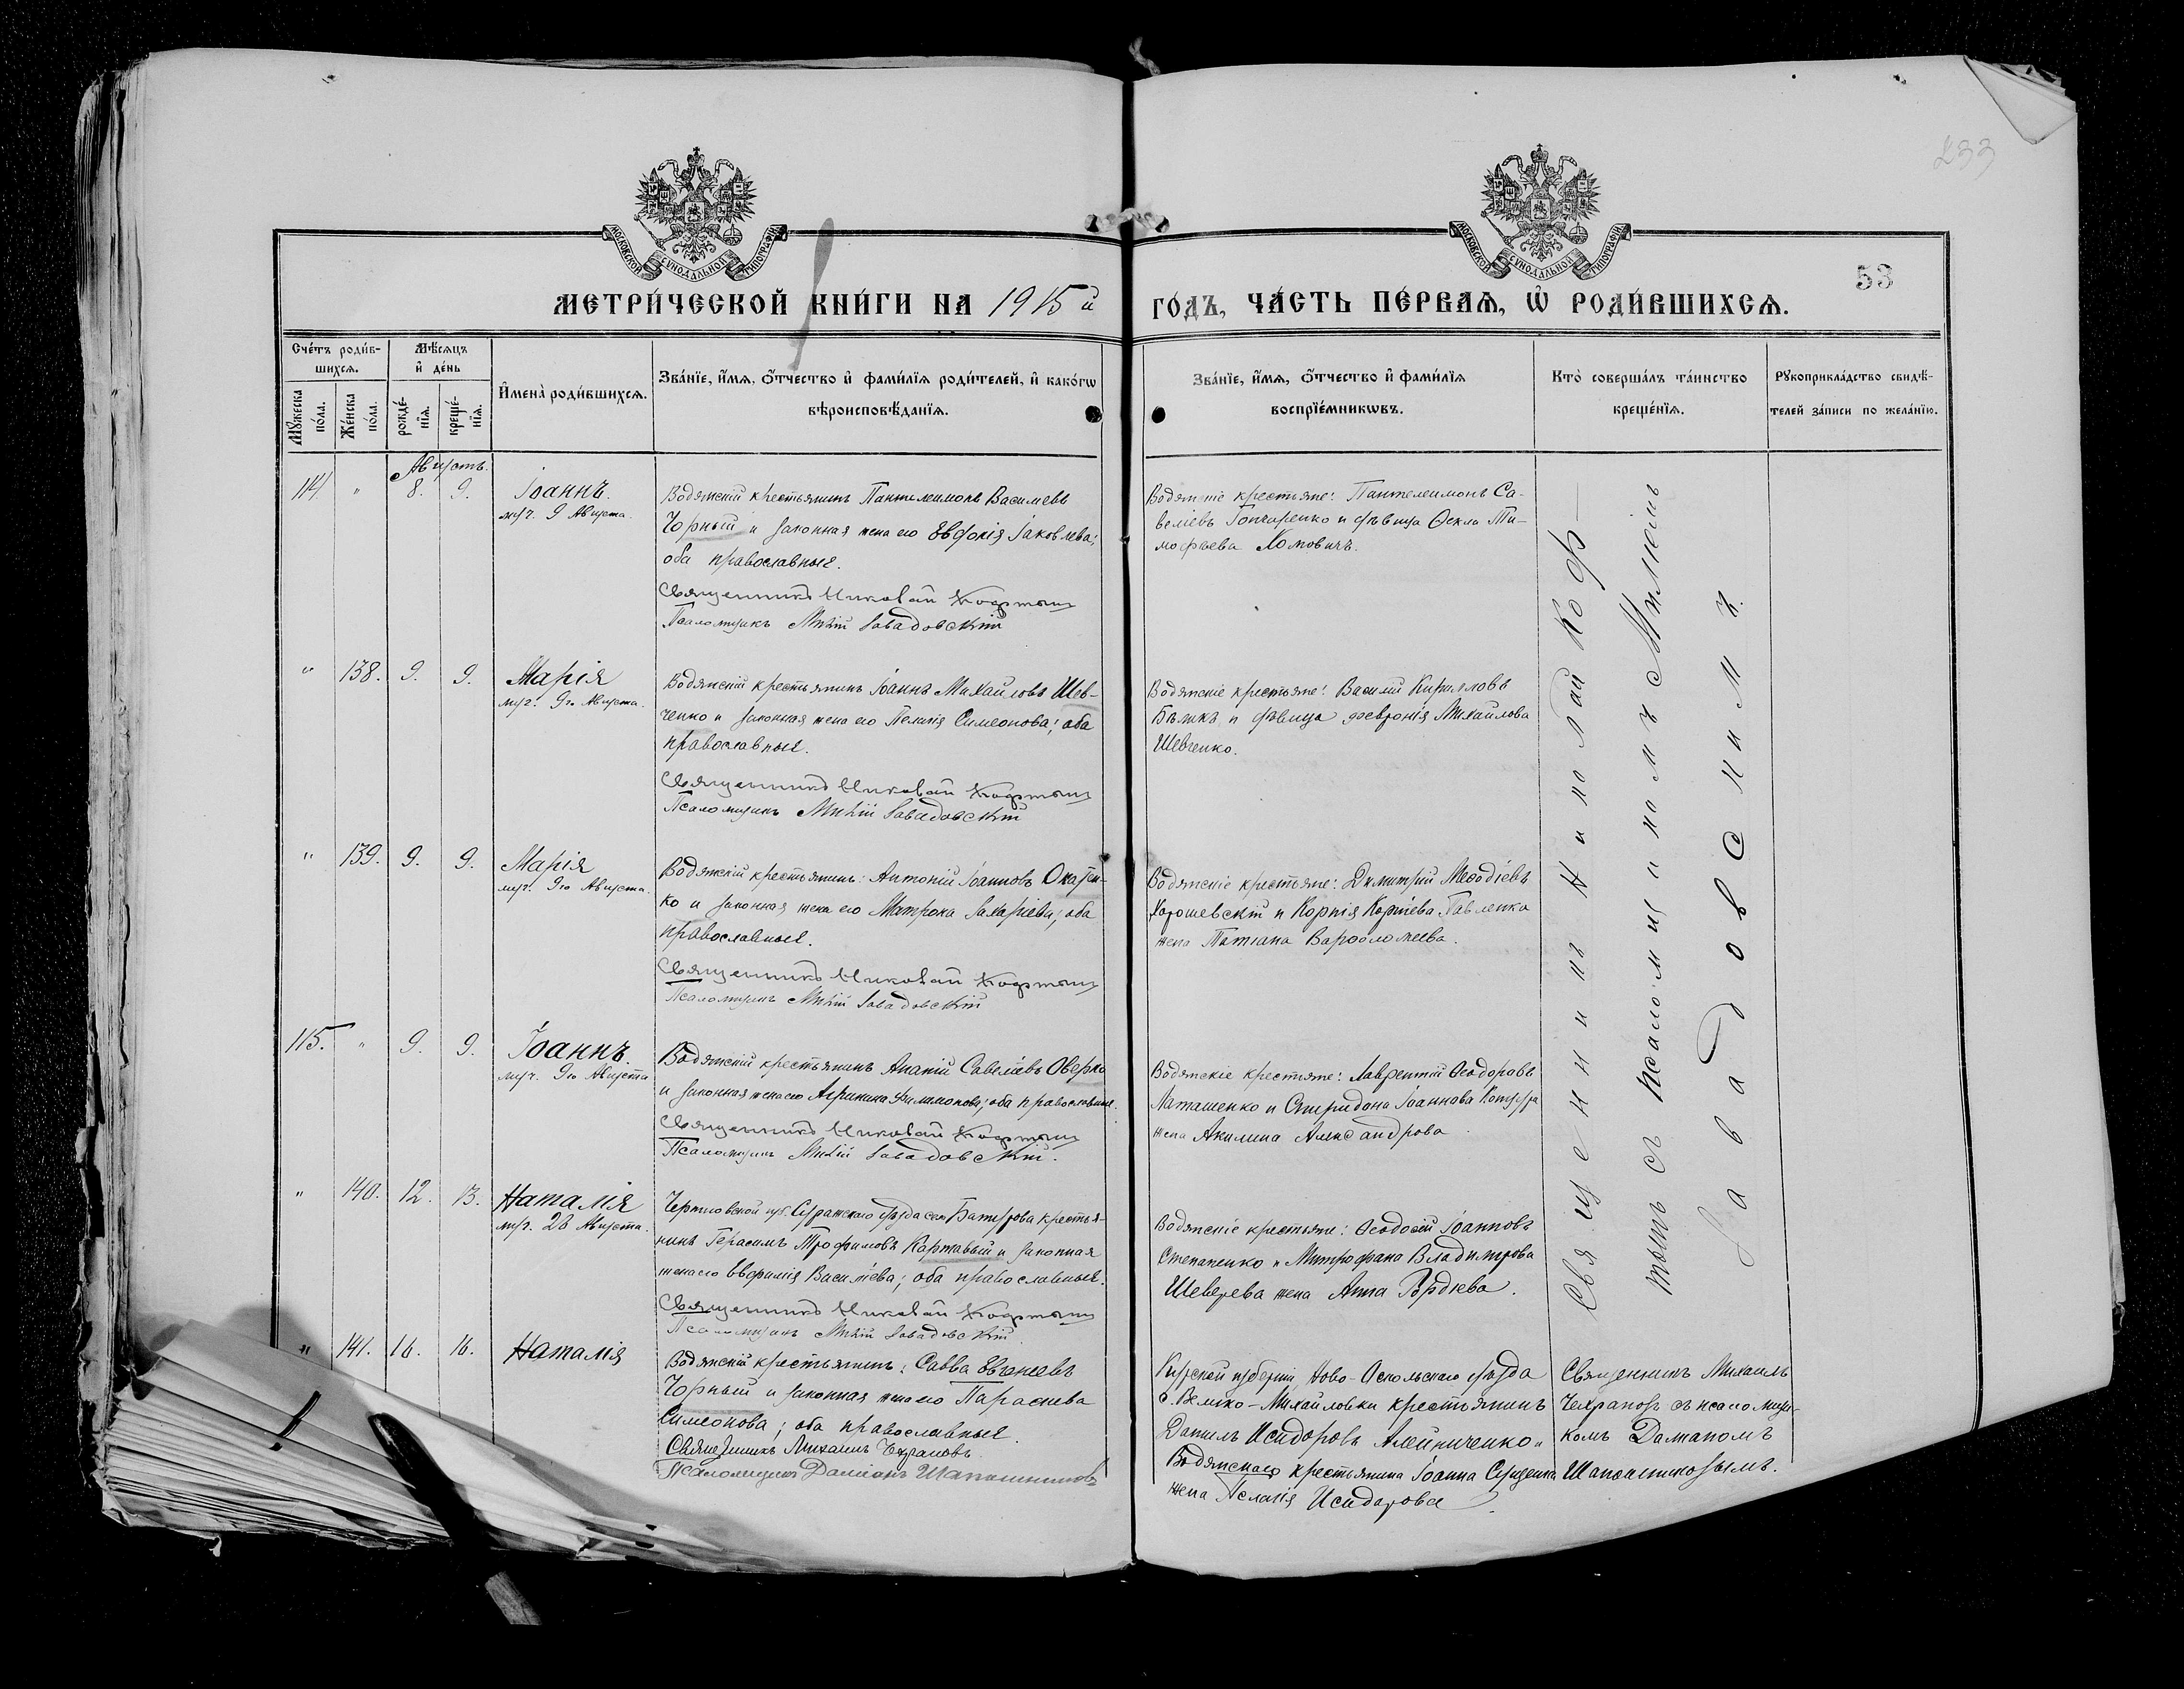 233
МОСКОВСКОЙ СѴНОДАЛЬНОЙ ТИПОГРАФІИ
МОСКОВСКОЙ СѴНОДАЛЬНОЙ ТИПОГРАФІИ
53
МЕТРИ́ЧЕСКОЙ КНИ́ГИ НА 1915й ГО́ДЪ, ЧА́СТЬ ПЕ́РВАѦ, Ѿ РОДИ́ВШИХСѦ.
Сче́тъ роди́в-
шихсѧ.
Мꙋжеска по́ла.
Же́нска по́ла.
Мѣ́сѧцъ
и҆ де́нь
рожде́-
нїѧ.
креще́-
нїѧ.
И҆мена̀ роди́вшихсѧ.
Зва́нїе, и҆́мѧ, ѻ҆́тчество и҆ фами́лїѧ роди́телей, и҆ како́гѡ
вѣроисповѣ́данїѧ.
Зва́нїе, и҆́мѧ, ѻ҆́тчество и҆ фами́лїѧ
воспрїе́мникѡвъ.
Кто̀ соверша́лъ та́инство
креще́нїѧ.
Рꙋкоприкла́дство свидѣ́-
телей за́писи по жела́нїю.
Августъ.
114. " 8. 9. Іоаннъ.
муч. 9 Августа.
Водянскій крестьянинъ Пантелеимонъ Василіевъ
Чорный и законная жена его Евдокія Іаковлева;
оба православные.
Священникъ Николай Кофтын
Псаломщикъ Михій Завадовскій
Водянскіе крестьяне: Пантелеимонъ Са-
веліевъ Гончаренко и дѣвица Ѳекла Ти-
моѳѣева Хомовичъ.
" 138. 9. 9. Марія
муч. 9го Августа.
Водянскій крестьянинъ Іоаннъ Михайловъ Шев-
ченко и законная жена его Пелагія Симеонова; оба
православные.
Священникъ Николай Кофтын
Псаломщикъ Михій Завадовскій
Водянскіе крестьяне: Василій Кирилловъ
и дѣвица Февронія Михайлова
Шевченко.
" 139. 9. 9. Марія
муч. 9го Августа.
Водянскій крестьянинъ: Антоній Іоанновъ
ко и законная жена его Матрона Захаріева; оба
православные.
Священникъ Николай Кофтын
Псаломщикъ Михій Завадовскій
Водянскіе крестьяне: Димитрій Меѳодіевъ
Хорошевскій и Корнія Корніева Павленко
жена Татіана Варѳоломеева.
115. " 9. 9. Іоаннъ.
муч. 9го Августа
Водянскій крестьянинъ Ананій Савеліевъ Оверко
и законная жена его Агрипина Филимонова; оба православные.
Священникъ Николай Кофтын
Псаломщикъ Михій Завадовскій.
Водянскіе крестьяне: Лаврентій Ѳеодоровъ
Латашенко и Спиридона Іоаннова
жена Акилина Александрова.
" 140. 12. 13. Наталія
муч. 26 Августа.
Черниговской губ. Суражскаго уѣзда села Батурова крестья-
нинъ Герасимъ Трофимовъ Каржавый и законная
жена его Евфимія Василіева; оба православные.
Священникъ Николай Кофтын
Псаломщикъ Михій Завадовскій
Водянскіе крестьяне: Ѳеодосій Іоанновъ
Степаненко и Митрофана Владимірова
Шеверева жена Анна Гордіева.
Священникъ Николай Коф-
тынъ съ псаломщикомъ Михіемъ
Завадовскимъ.
" 141. 16. 16. Наталія
Водянскій крестьянинъ: Савва Евгеніевъ
Чорный и законная жена его Параскева
Симеонова; оба православные.
Священникъ Михаилъ Чехрановъ
Псаломщикъ Даміанъ Шапошниковъ
Курской губерніи, Ново-Оскольскаго уѣзда
с. Велико-Михайловки крестьянинъ
Даніилъ Исидоровъ Алейниченко и
Водянскаго крестьянина Іоанна
жена Пелагія Исидорова
Священникъ Михаилъ
Чехрановъ съ псаломщи-
комъ Даміаномъ
Шапошниковымъ.